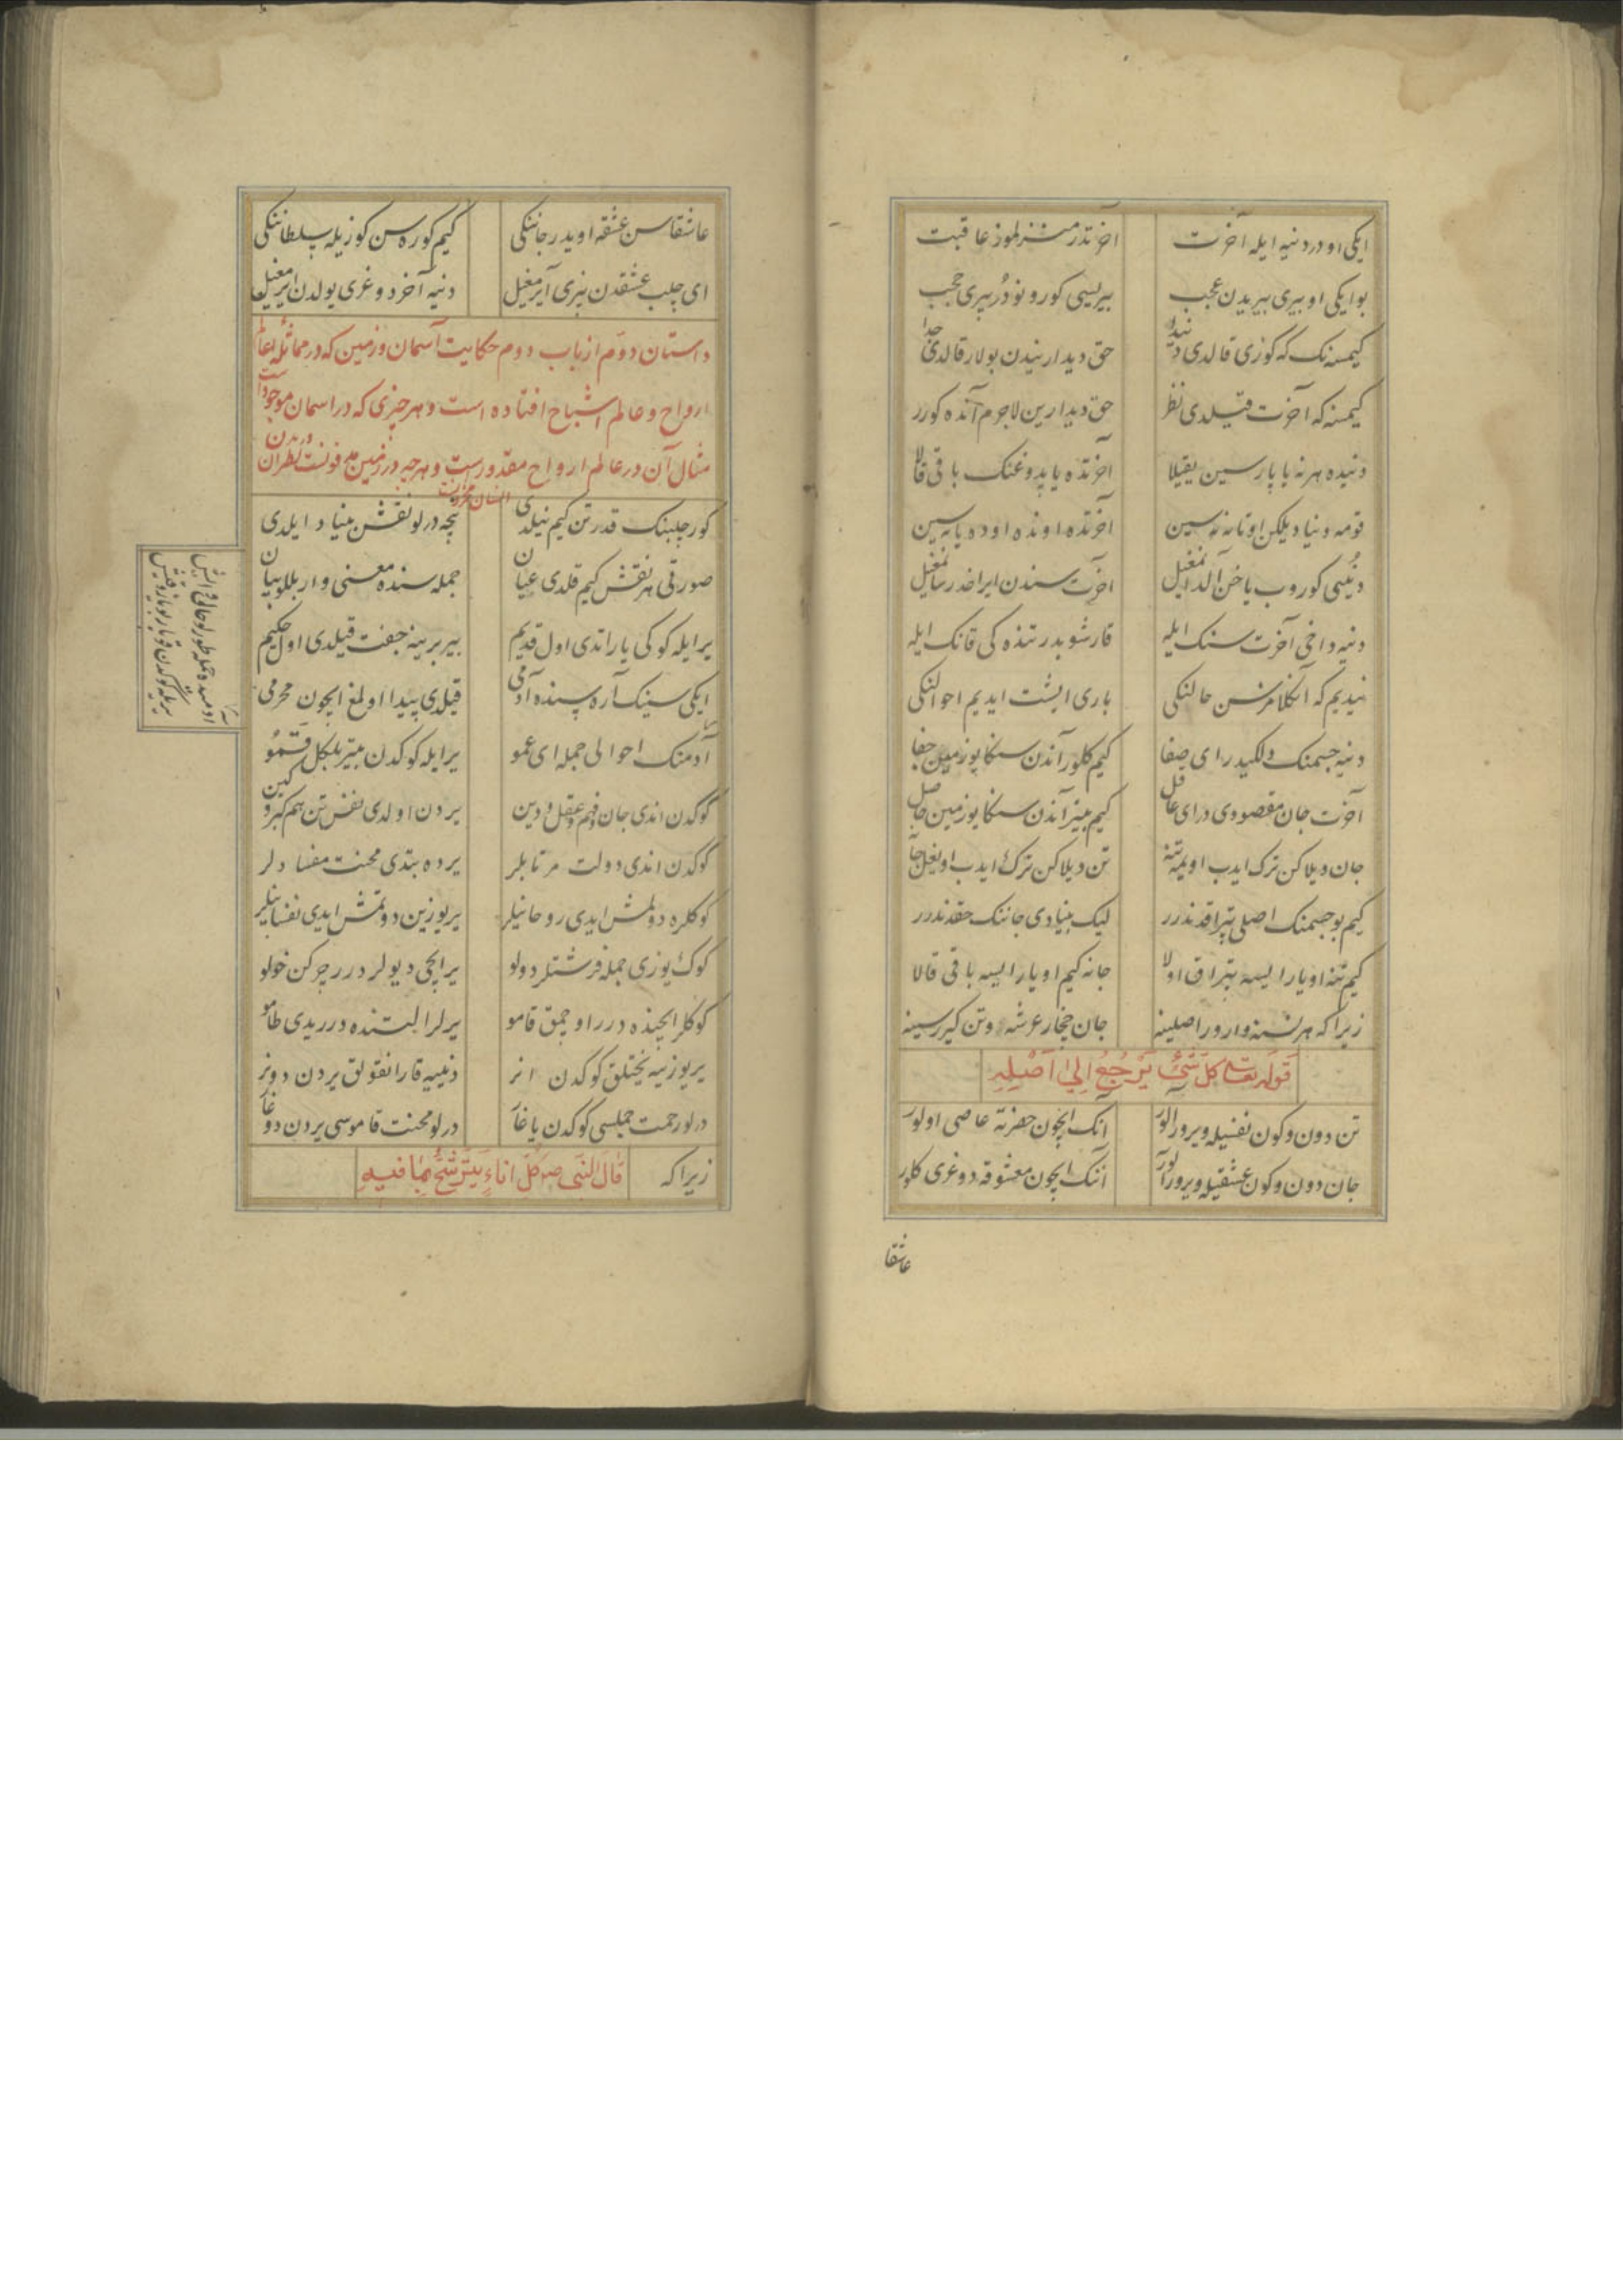 ایکی او در دنیه ایله آخرت آخرتدر منزلموز عاقبت
بو ایکی او بیری بیریدن عجب بیریسی کورونو دُر بیری حجب
کیمسنک که کوزی قالدی دنیدا حق دیدارنیدن بولار قالدی جدا
کیمسنه که آخرت قیلدی نظر حق دیدارین لاجرم آنده کورر
دنیده هر نه یاپارسین ییقیلا آخرتده یاپدوغنک باقی قالا
قومه دنیا دیلکن اوتانه سین آخرتده اوننده اوده یانه سین
دنیی کوروب یاخن آلدانمغیل آخرت سندن ایراخدر سانمغیل
دنیه داخی آخرت سنک ایله قارشو بدر تنده کی قانک ایله
نیدیم که آنکلامزسن حالنکی باری ایشت ایدیم احوالنکی
دنیه جسمنک دلکیدر ای صفا کیم کلور آندن سنکا یوزمین جفا
آخرت جان مقصودی در ای عاقل کیم بیتر آندن سنکا یوزمین حاصل
جان دیلاکن ترک ایدب اویمه تنه تن دیلاکن ترک ایدب اویغل جانه
کیم بو جسمنک اصلی تپراقدندرر لیک بنیادی جاننک حقدندرر
کیم تنه اویارایسه تپراق اولا جانه کیم اویارایسه باقی قالا
زیرا که هر نسنه وارور اصلینه جان چخار عرشه و تن کیرر سینه
قوله تعالی کل شَیْءٍ یَرْجِعُ اِلیٰ اَصْلِهِ
تن دون و کون نفسیله ویرور آلور آنک ایچون حضرته عاصی اولور
جان دون و کون عشقیله ویرور آلور آننک ایچون معشوقه دوغری کلور
عاشقا
عاشقاسن عشقه اویدر جاننکی کیم کوره سن کوزیله سلطاننکی
ای چلب عشقدن بیزی آیرمغیل دنیه آخر دوغری یولدن ایرمغیل
داستان دوّم از باب دوم حکایت آسمان و زمین که در مماثله بعالم
ارواح و عالم اشباح افتاده است و هر چیزی که در اسمان موجودات
مثال آن در عالم ارواح مقدورست و هر چه در زمین
کور چلبنک قدرتن کیم نیلدی نیجه درلو نقش بنیاد ایلدی
صورتی هر نقش کیم قلدی عیان جمله سنده معنی وار بللو بیان
یر ایله کوکی یاراتدی اول قدیم بیر برینه جفت قیلدی اول حکیم
ایکی سینک آره سنده آدمی قیلدی پیدا اولمغ ایچون محرمی
آدمنک احوالی جمله ای عمو یر ایله کوکدن بیتر بلکل قمو
کوکدن اندی جان و فهم و عقل و دین یردن اولدی نفس تن هم کبر و کین
کوکدن اندی دولت مرتابلر یرده بتدی محنت مفسادلر
کوکلره دولمش ایدی روحانیلر یریوزین دوتمش ایدی نفسانیلر
کوک یوزی جمله فرشتلر دولو یر ایچی دیولر درر چرکن خولو
کوکلر ایچنده درر اوچمق قامو یرلر البتنده درر یدی طامو
یریوزینه یختلق کوکدن انر دنییه قارانقولق یردن دونر
درلو رحمت جمله سی کوکدن یاغار درلو محنت قاموسی یردن دوغار
زیرا که قالَ النَّبی صم کُلّ اناءٍ یَتَرَشَّحُ بِمٰا فیهِ